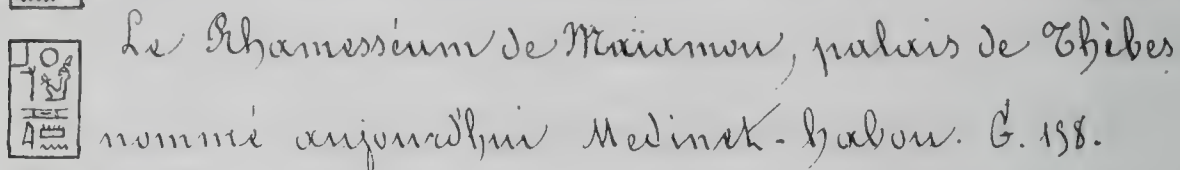 Le Rhamesséum de Maïamou, palais de Thèbes
nommé aujourd'hui Medinet-habou. G. 198.